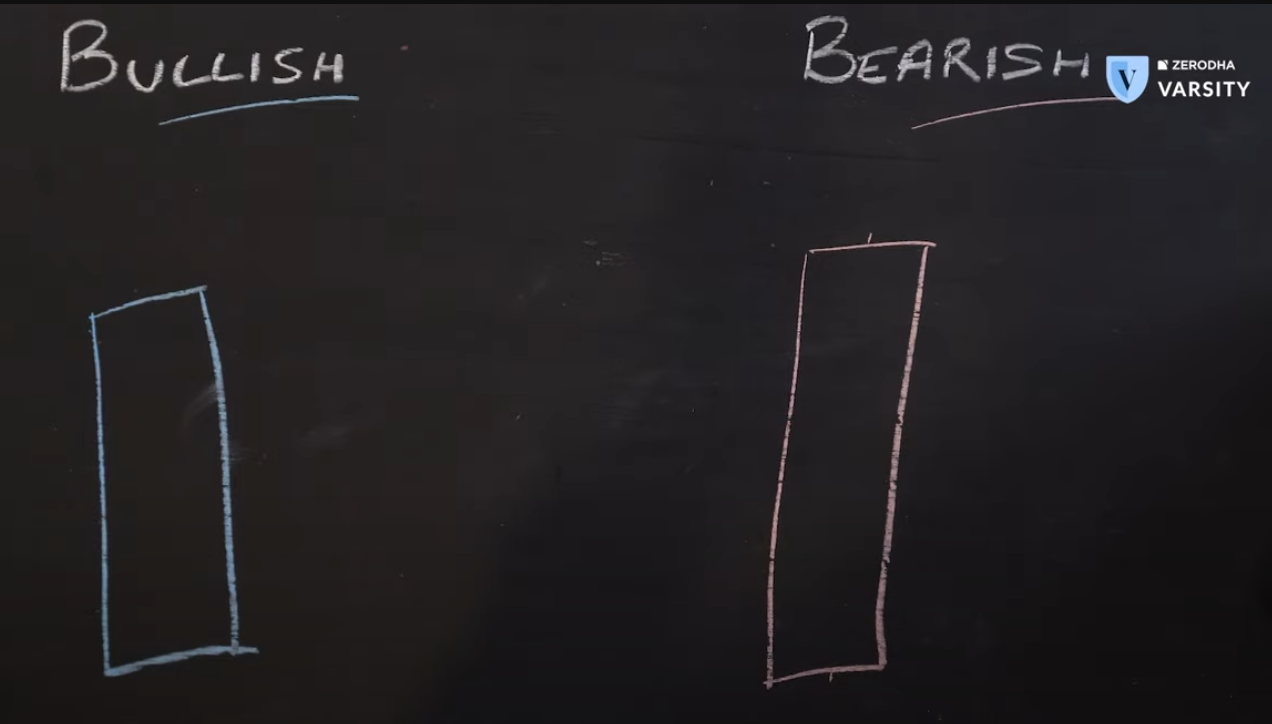 BULLISH
BEARISH
ZERODHA
VARSITY